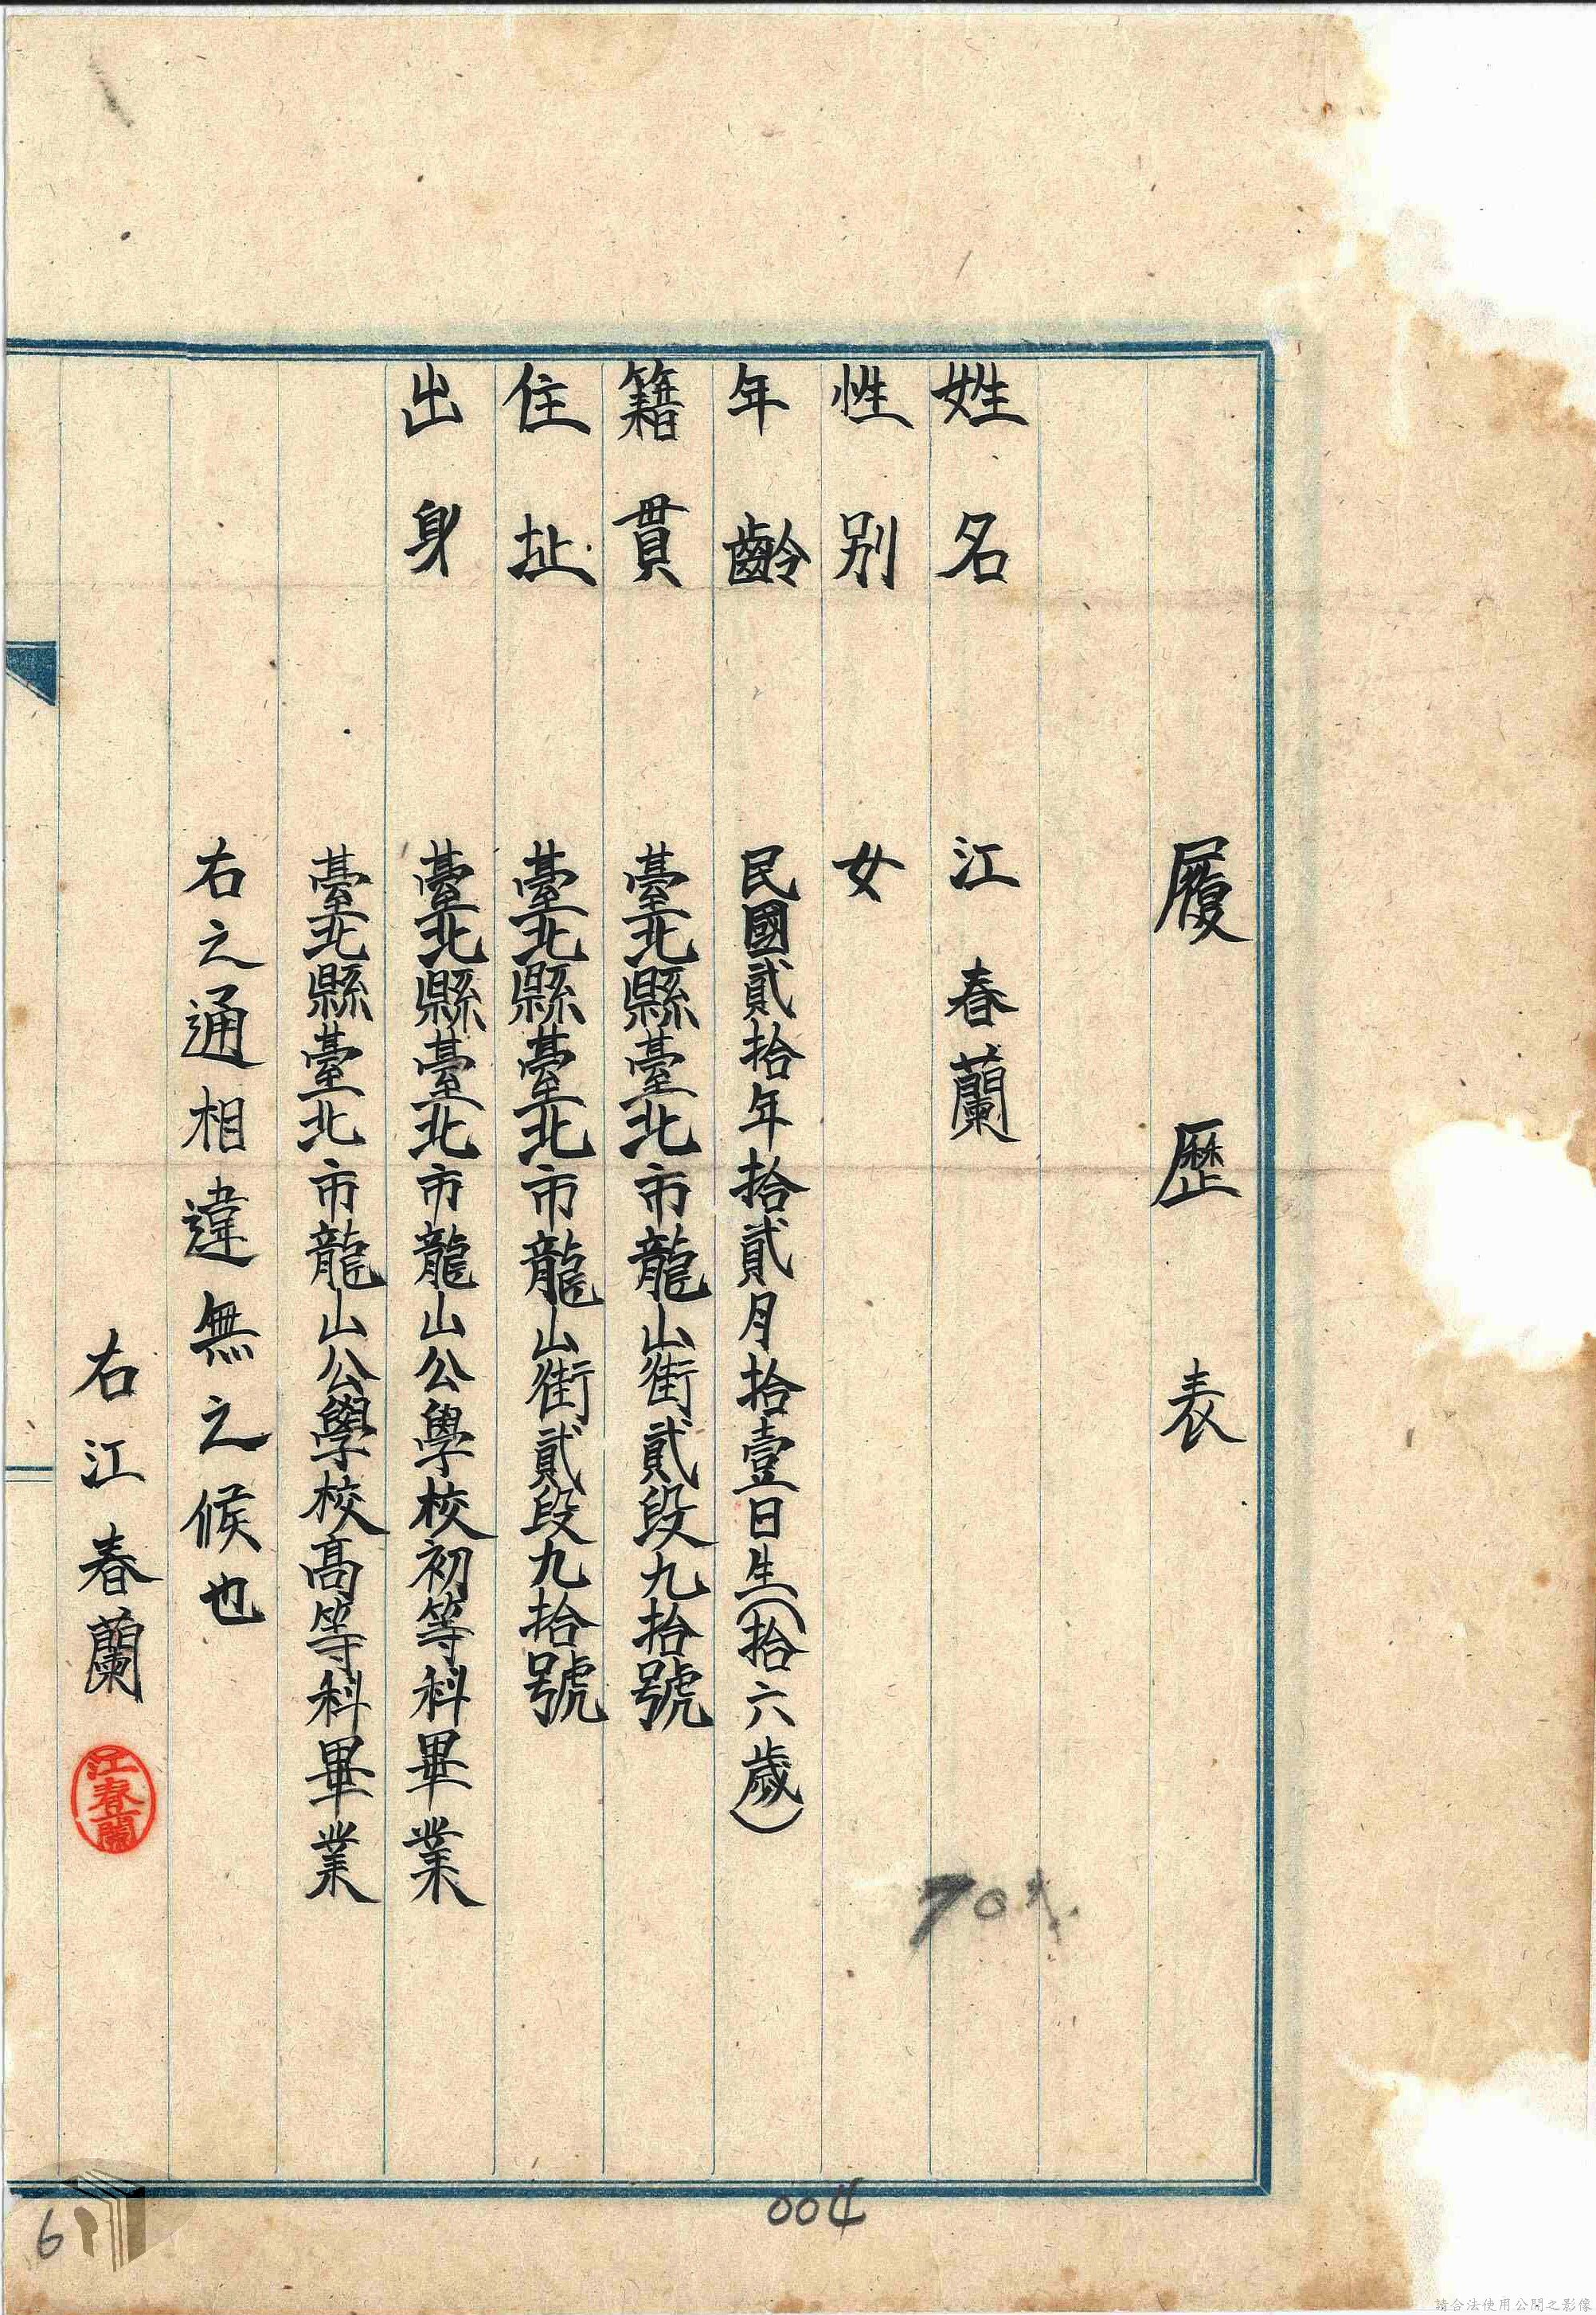 履歷表
姓名 江春蘭
性別 女
年齡 民國貳拾年拾貳月拾壹日生(拾六歲)
籍貫 臺北縣臺北市龍山街貳段九拾號
住址 臺北縣臺北市龍山街貳段九拾號
出身 臺北縣臺北市龍山公學校初等科畢業
臺北縣臺北市龍山公學校高等科畢業
右之通相違無之候也
右江春蘭
江春蘭
004
6
請合法使用公開之影像